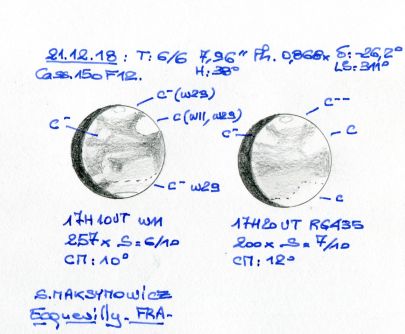 21.12.18 : T: 6/6 7,96" Ph. 0,868x δ: -26,2°
Cass. 150 F12. H: 38° LS: 311°
C⁻ (W29)
C⁻
C (W11, W29)
C⁻ W29
C⁻⁻
C⁻
C
C
17H10UT W11
257x S=6/10
CM: 10°
17H20 UT RG435
200x S=7/10
CM: 12°
S.MAKSYMOWICZ
Ecquevilly. FRA-